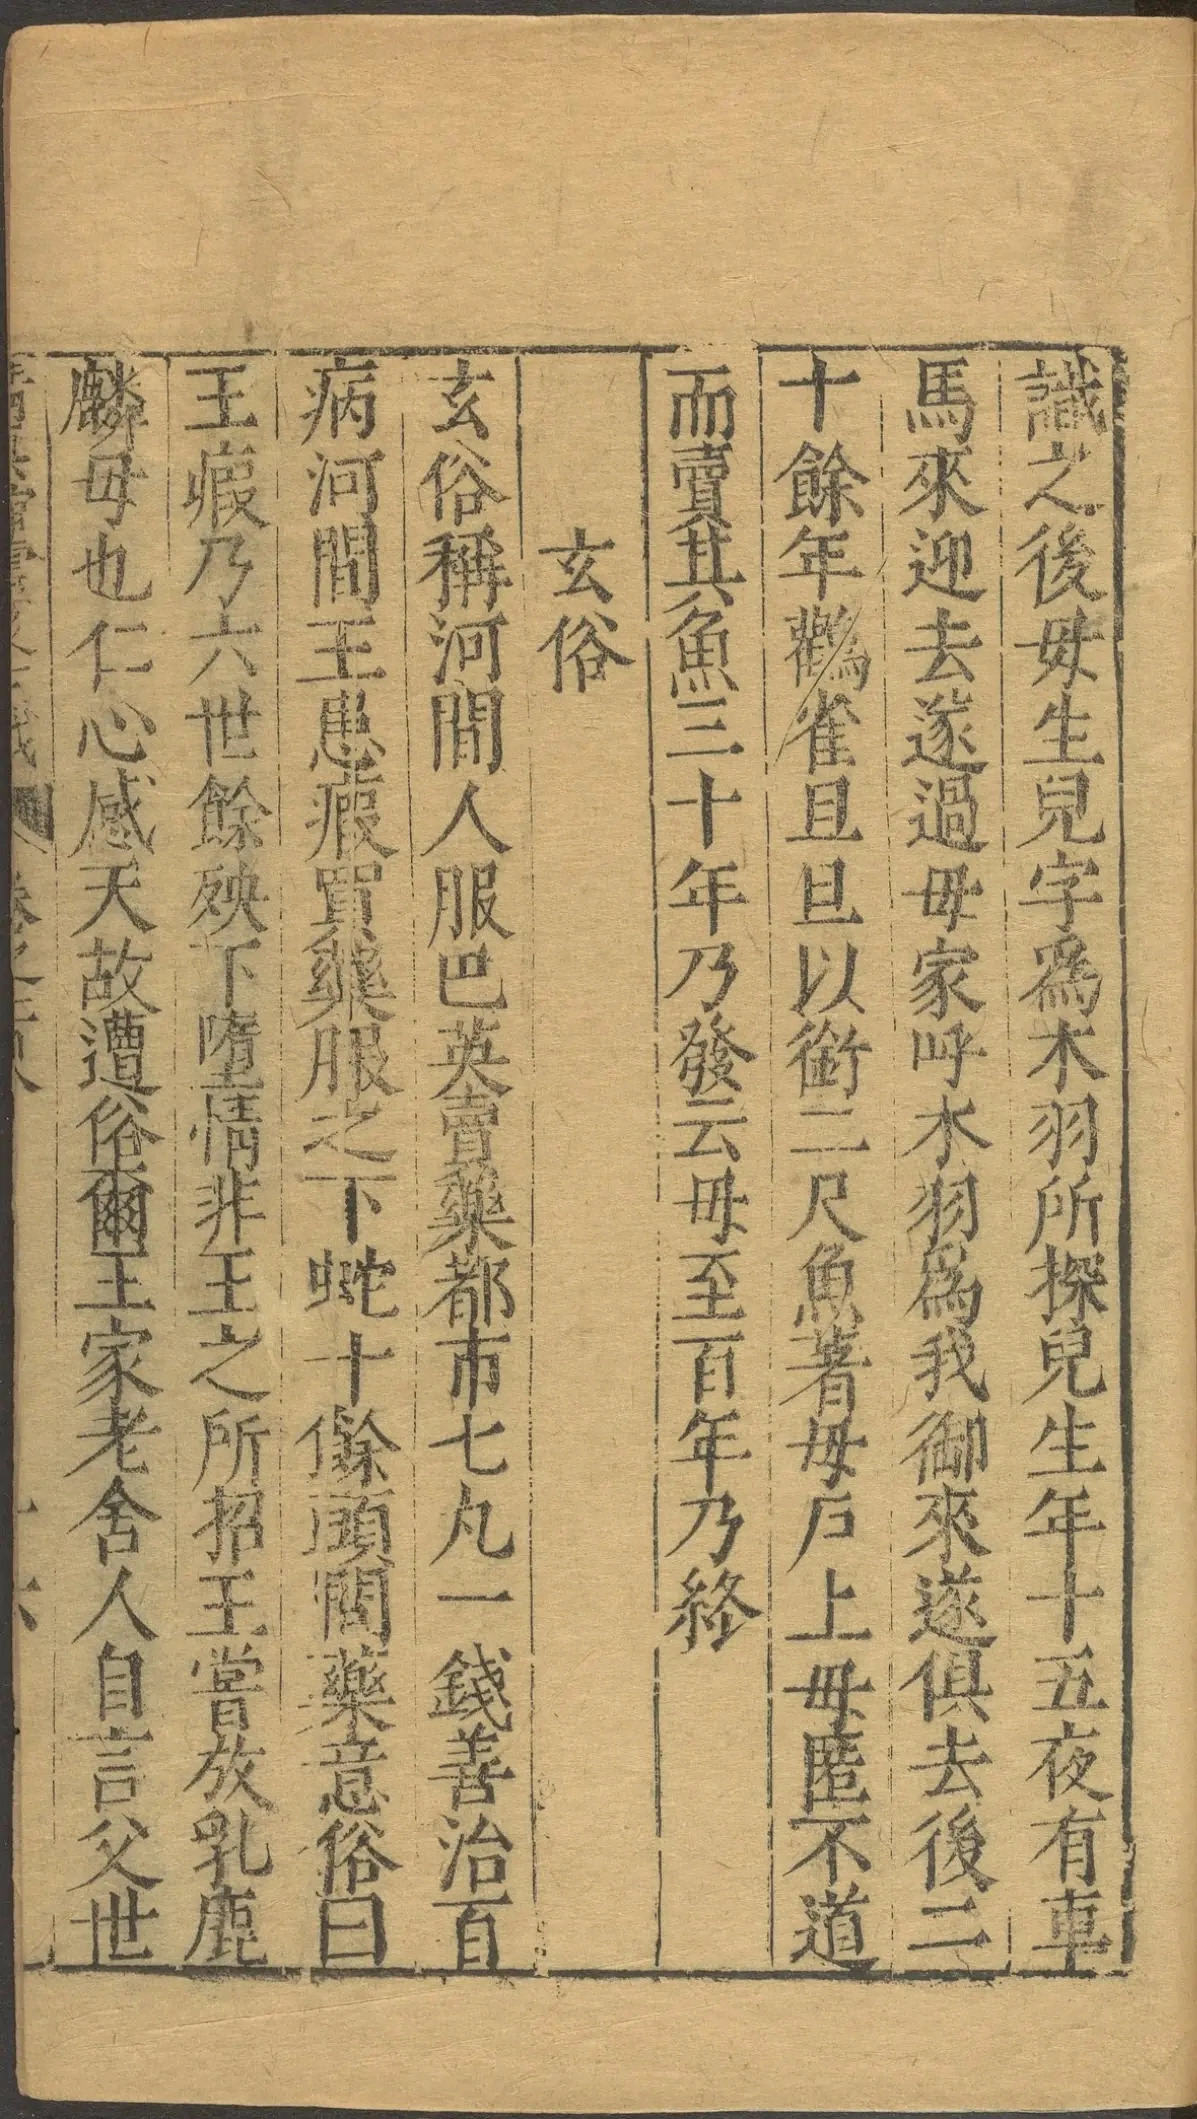 識之後母生兒字為木羽所探兒生年十五夜有車
馬來迎去遂過母家呼木羽為我御來遂俱去後二
十餘年鸛雀旦旦以銜二尺魚著母戶上母匿不道
而賣其魚三十年乃發云母至百年乃終
玄俗
玄俗稱河間人服巴英賣藥都市七丸一錢善治百
病河間王患瘕買藥服之下蛇十餘頭問藥意俗曰
王瘕乃六世餘殃下墮情非王之所招王嘗放乳鹿
麟母也仁心感天故遭俗爾王家老舍人自言父世